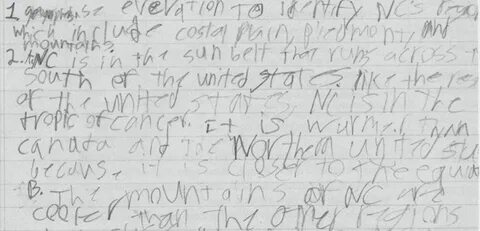 1 use elevation to identify NC's
which include costal plain, piedmont, and
mountains.
2. A NC is in the sun belt that runs across
south of the united states. like the res
of the united states, NC is in the
tropic of cancer. it is wurmer than
canata and the Northern united sta
becouse it is closer to the equa
B. The mountains of NC are
cooler than the other regions